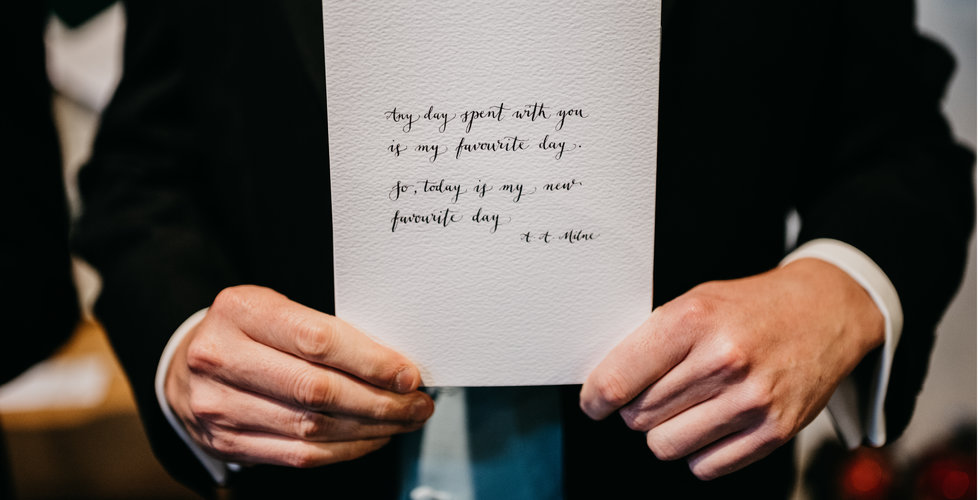 Any day spent with you
is my favourite day.
So, today is my new
favourite day
A. A. Milne